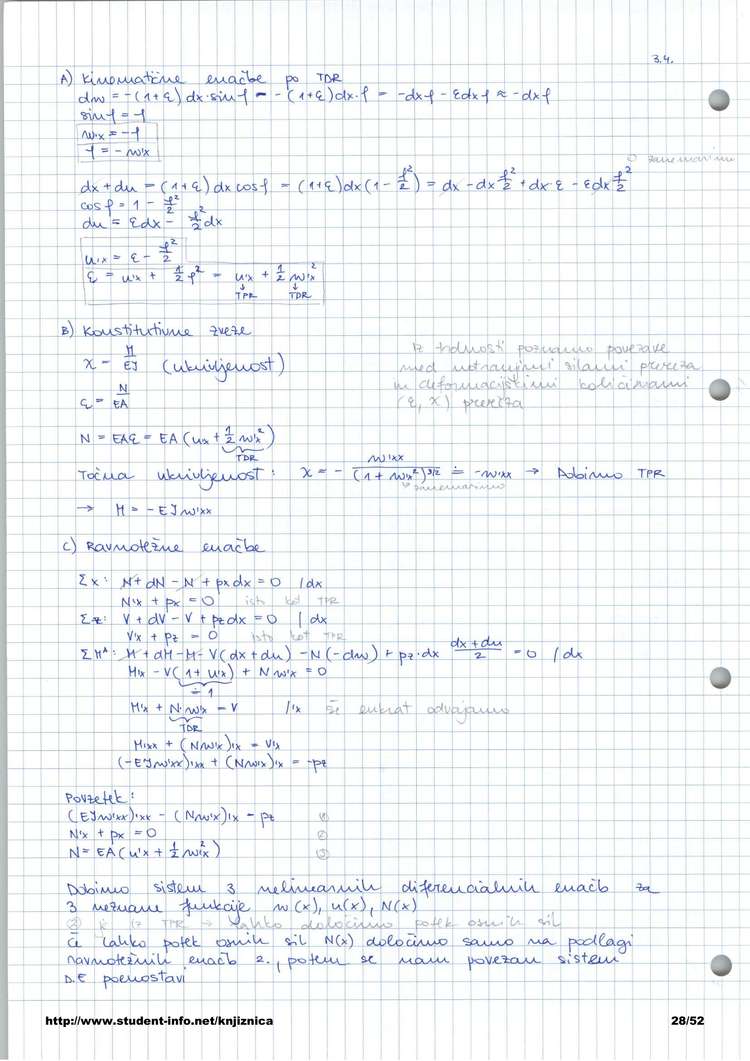 3.4.
A) Kinematične enačbe po TDR
dw = -(1+ε) dx·sinφ = -(1+ε)dx·φ = -dxφ - εdxφ ≈ -dxφ
sinφ = φ
w,x = -φ
φ = -w,x
0 zanemarimo
dx + du = (1+ε) dx cosφ = (1+ε)dx(1 - φ²/2) = dx - dx φ²/2 + dx ε - εdx φ²/2
cosφ = 1 - φ²/2
du = εdx - φ²/2 dx
u,x = ε - φ²/2
ε = u,x + 1/2 φ² = u,x + 1/2 w,x²
↓ TPR ↓ TDR
B) Konstitutivne zveze
ϰ = M/EJ (ukrivljenost)
ε = N/EA
Iz trdnosti poznamo povezave
med notranjimi silami prereza
in deformacijskimi količinami
(ε, ϰ) prereza
N = EAε = EA(u,x + 1/2 w,x²)
TDR
Točna ukrivljenost: ϰ = - w,xx/(1 + w,x²)^3/2 ≐ -w,xx → Dobimo TPR
zanemarimo
→ M = -EJw,xx
C) Ravnotežne enačbe
Σx: N + dN - N + px dx = 0 /dx
N,x + px = 0 isto kot TPR
Σz: V + dV - V + pz dx = 0 | dx
V,x + pz = 0 isto kot TPR
ΣMᴬ: M + dM - M - V(dx + du) - N(-dw) + pz·dx (dx + du)/2 = 0 /dx
M,x - V(1 + u,x) + N w,x = 0
≐ 1
M,x + N·w,x = V /,x še enkrat odvajamo
TDR
M,xx + (Nw,x),x = V,x
(-EJw,xx),xx + (Nw,x),x = -pz
Povzetek:
(EJw,xx),xx - (Nw,x),x = pz ①
N,x + px = 0 ②
N = EA(u,x + 1/2 w,x²) ③
Dobimo sistem 3 nelinearnih diferencialnih enačb za
3 neznane funkcije w(x), u(x), N(x)
② je iz TPR → lahko določimo potek osnih sil
Če lahko potek osnih sil N(x) določimo samo na podlagi
ravnotežnih enačb 2., potem se nam povezan sistem
D.E poenostavi
http://www.student-info.net/knjiznica 28/52